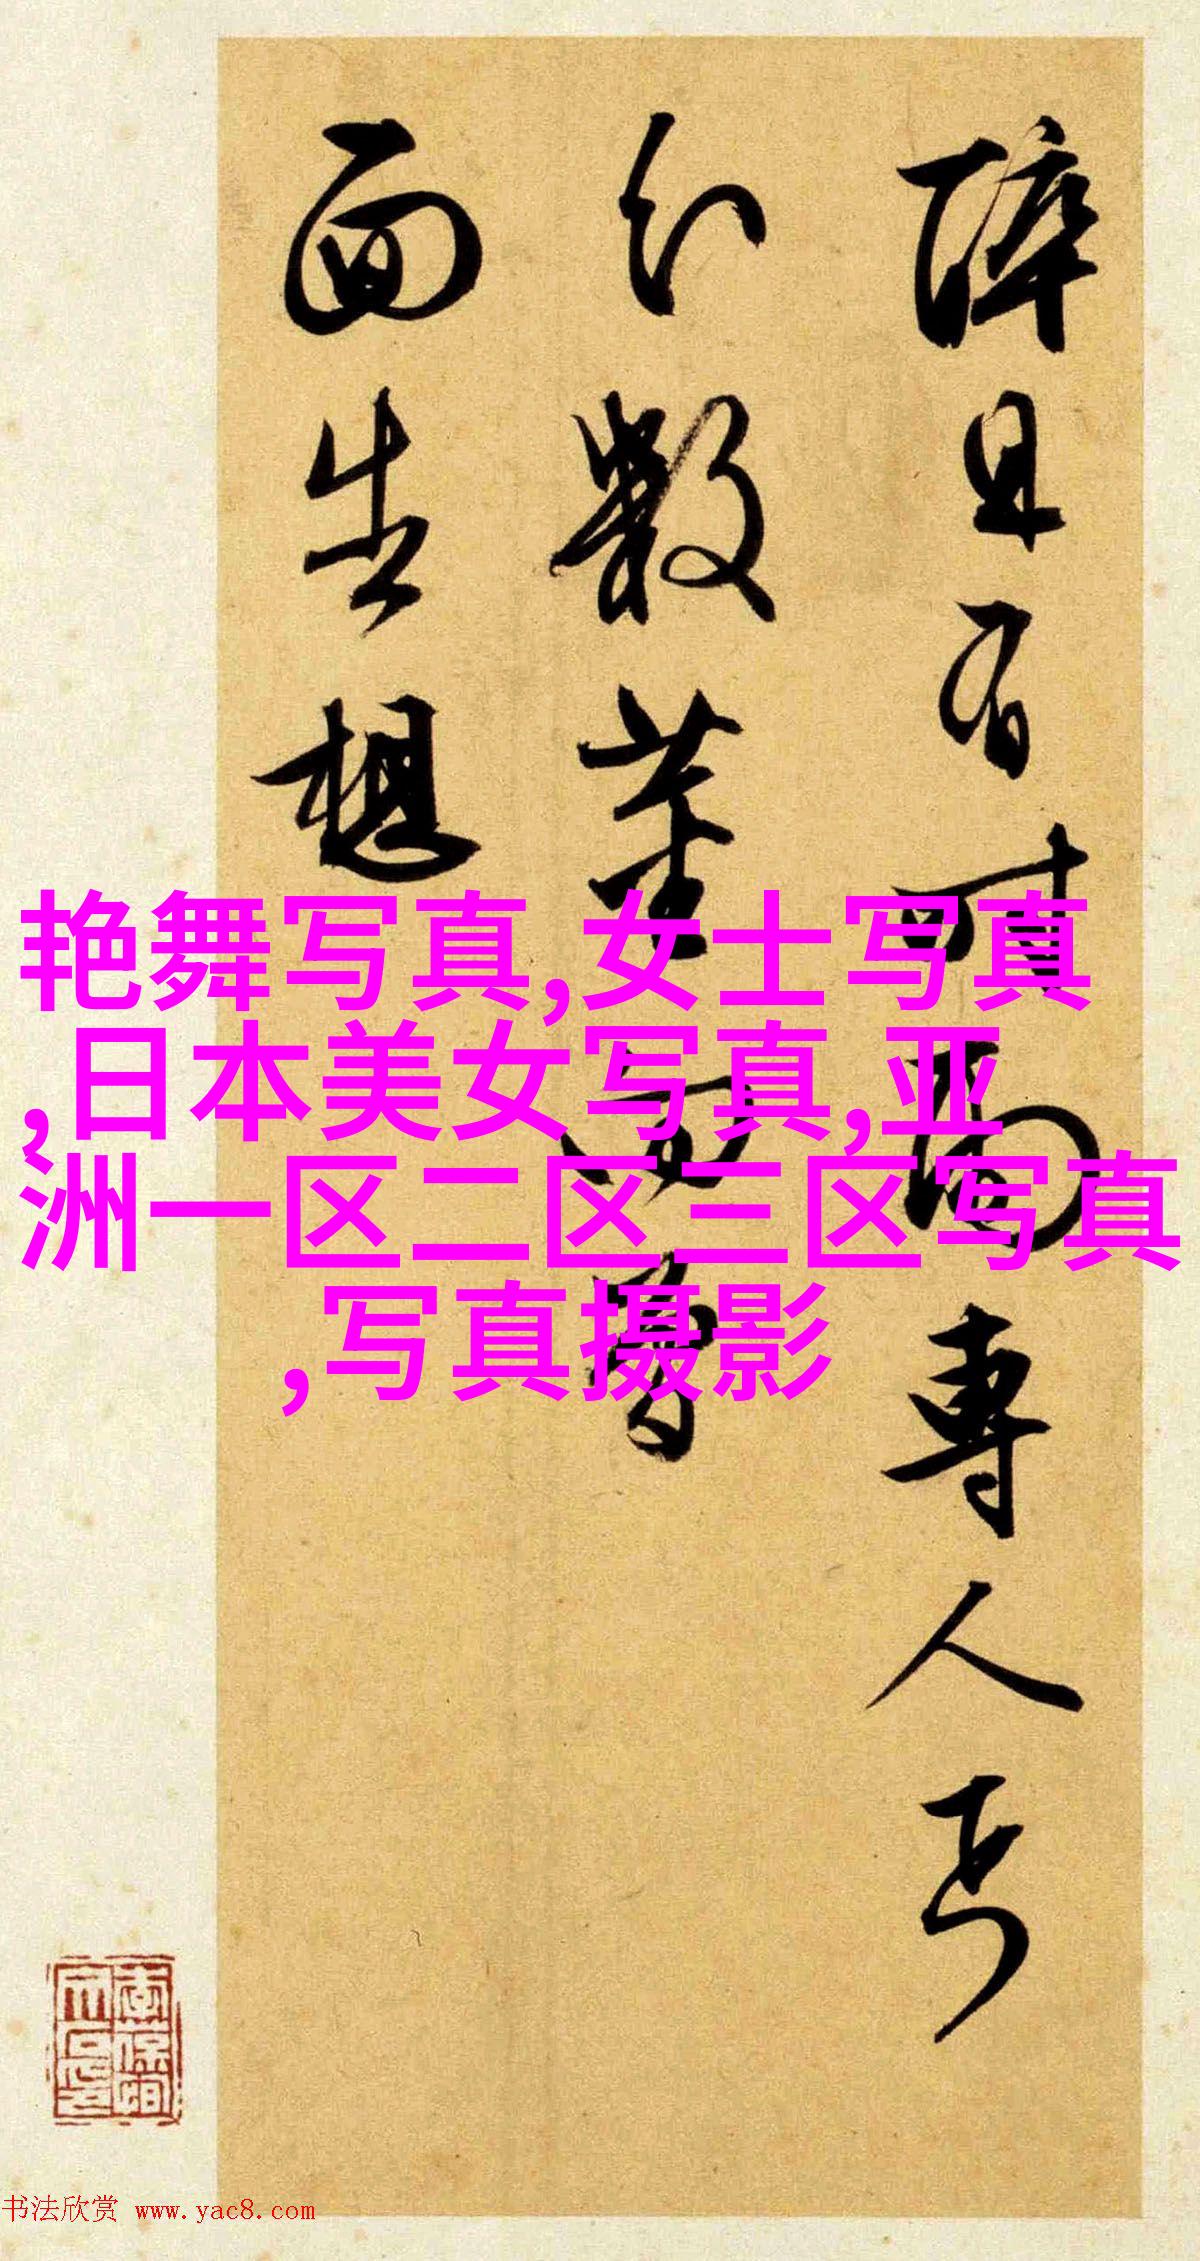 障日有時而專人
幻數
面生想
艳舞写真,女士写真
,日本美女写真,亚
洲一区二区三区写真
,写真摄影
书法欣赏 www.yac8.com